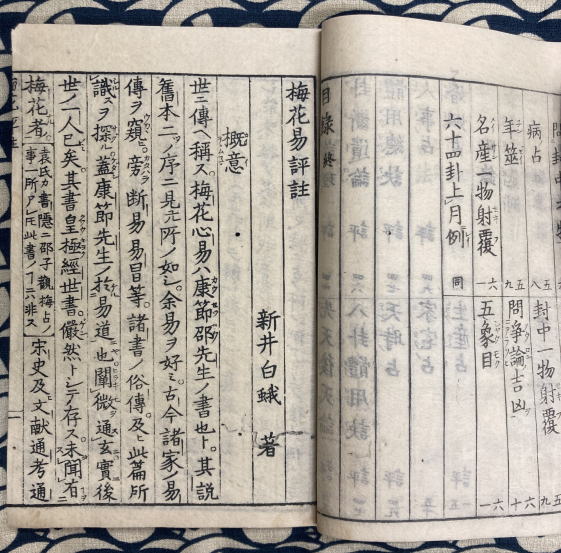 病占
封中一物射覆
年筮
問爭論吉凶
名産一物射覆
五象目
六十四卦上月例
目錄終
梅花易評註
新井白蛾 著
概意
世ニ傳ヘ稱ス梅花心易ハ康節邵先生ノ書也ト其説
舊本ニノ序ニ見元所ノ如シ余易ヲ好ミ古今諸家ノ易
傳ヲ窺ヒ旁斷易易冒等ノ諸書ノ俗傳及ヒ此篇所
識ヲ探ル蓋康節先生ノ於易道也闡微通玄實後
世ノ一人已矣其書皇極經世書儼然トシテ存ス未聞有
梅花者
袁氏カ書隱ニ邵子觀梅占ノ
事一所アレ𪜈此書ノ丁ニ非ス
宋史及文獻通考通